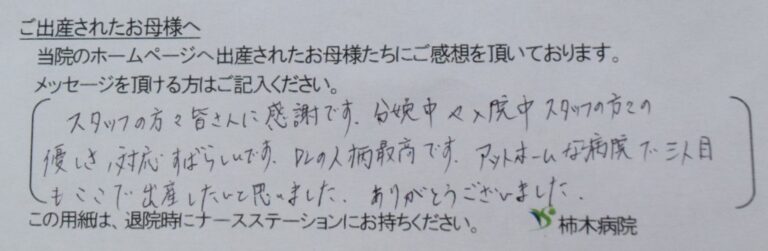 ご出産されたお母様へ
当院のホームページへ出産されたお母様たちにご感想を頂いております。
メッセージを頂ける方はご記入ください。
スタッフの方々皆さんに感謝です。分娩中や入院中スタッフの方々の
優しさ、対応すばらしいです。Drの人柄最高です。アットホームな病院で三人目
もここで出産したいと思いました。ありがとうございました。
この用紙は、退院時にナースステーションにお持ちください。 柿木病院